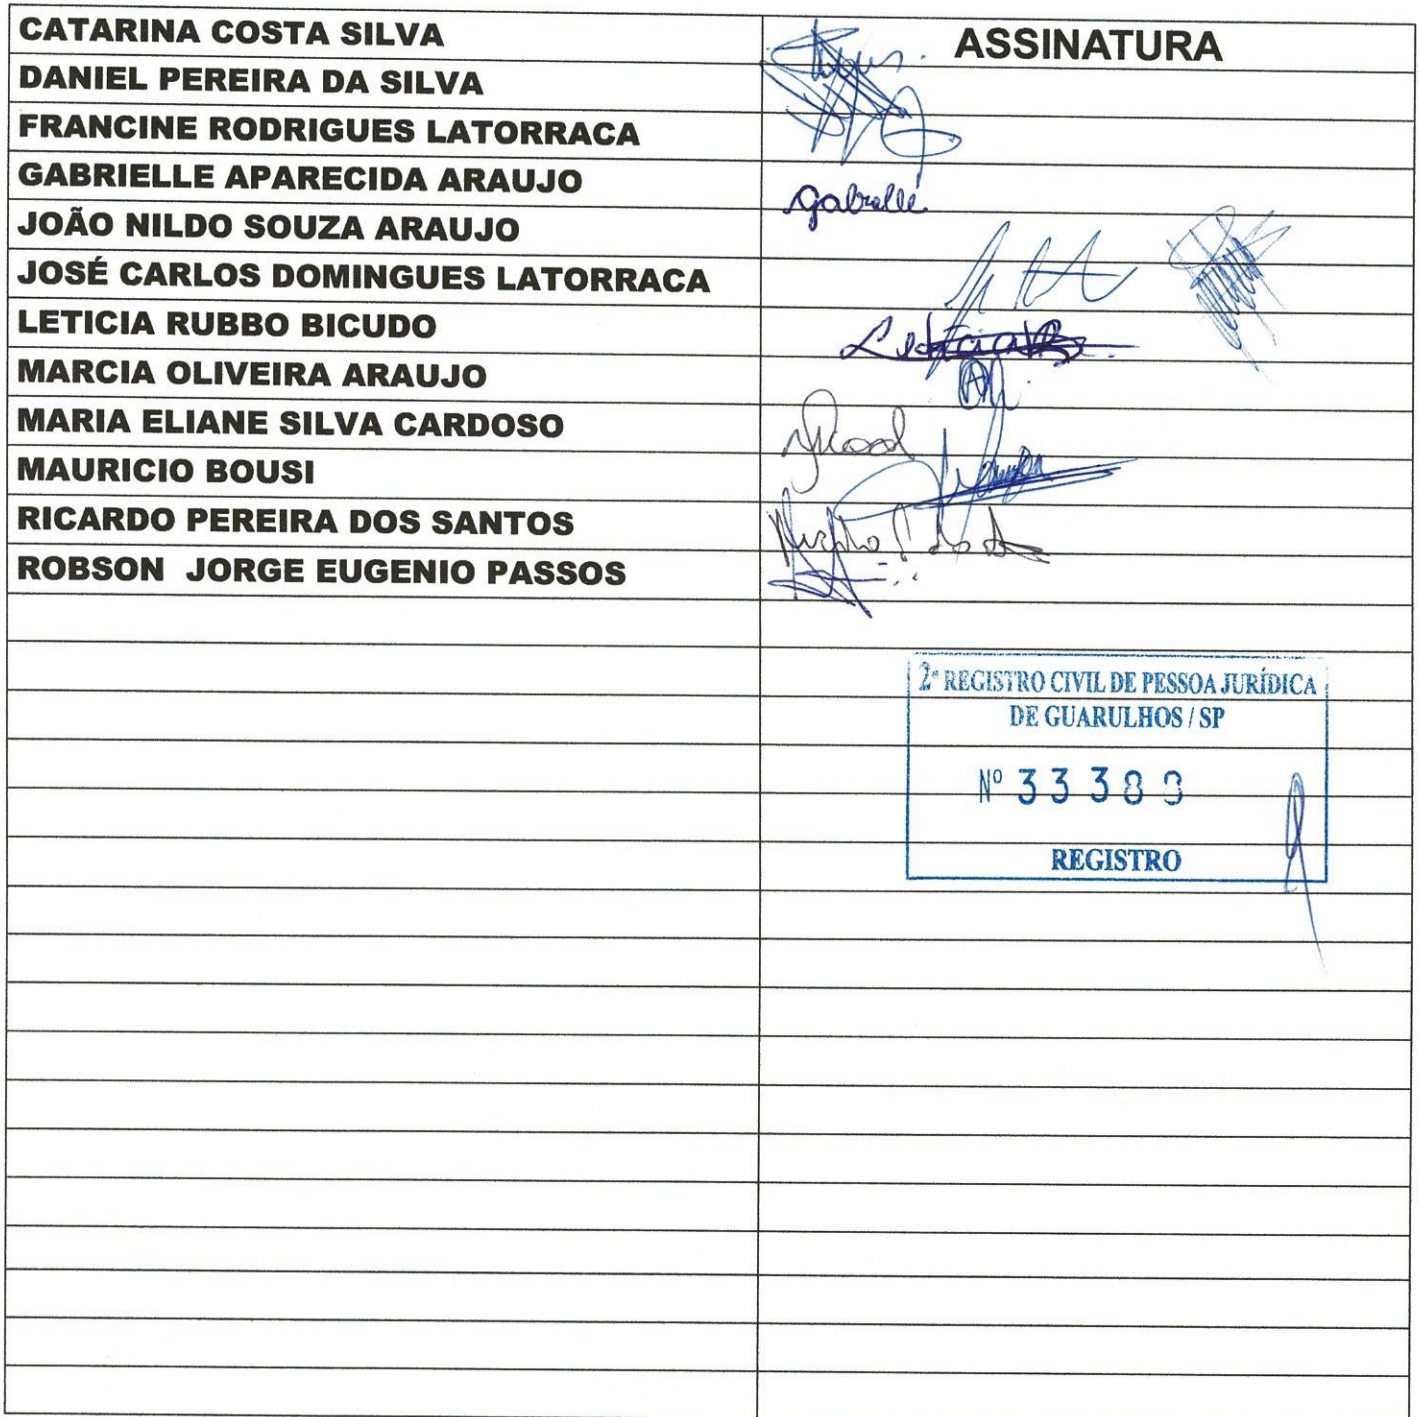 CATARINA COSTA SILVA
ASSINATURA
DANIEL PEREIRA DA SILVA
FRANCINE RODRIGUES LATORRACA
GABRIELLE APARECIDA ARAUJO
Gabrielle
JOÃO NILDO SOUZA ARAUJO
JOSÉ CARLOS DOMINGUES LATORRACA
LETICIA RUBBO BICUDO
MARCIA OLIVEIRA ARAUJO
MARIA ELIANE SILVA CARDOSO
MAURICIO BOUSI
RICARDO PEREIRA DOS SANTOS
ROBSON JORGE EUGENIO PASSOS
2º REGISTRO CIVIL DE PESSOA JURÍDICA
DE GUARULHOS / SP
Nº
REGISTRO